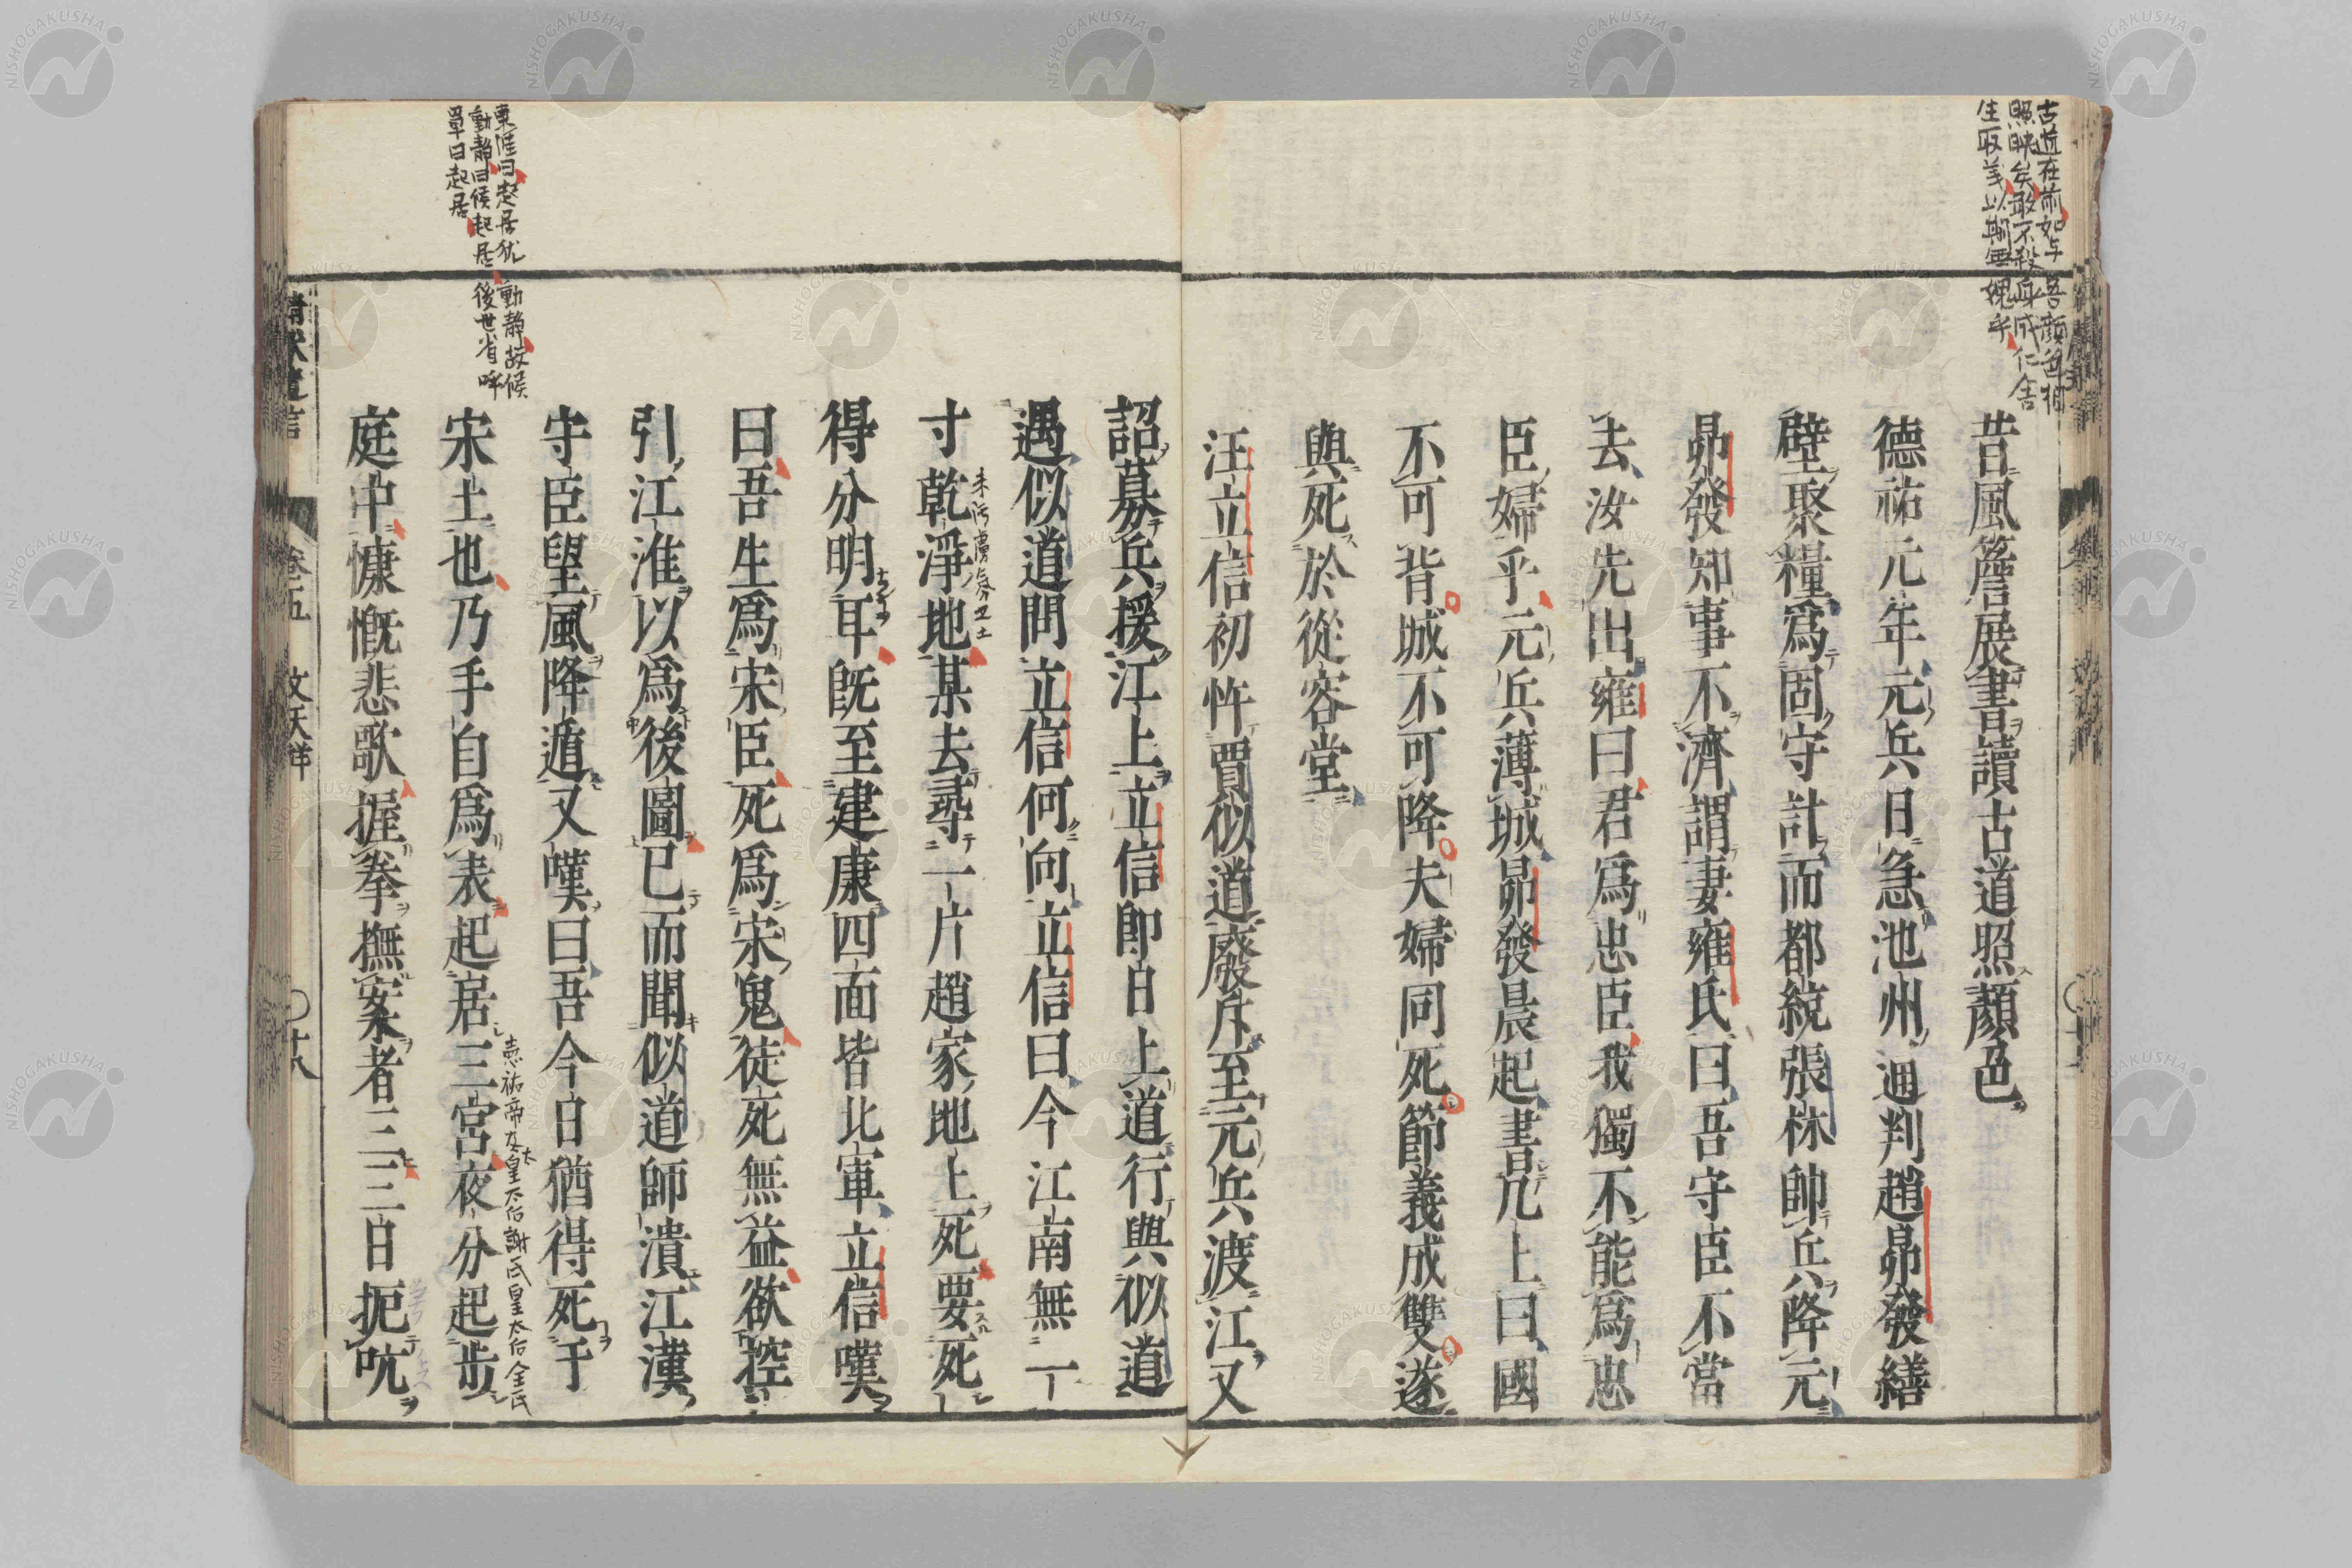 古道在前如与吾顔色相
照映矣敢不殺身成仁舍
生取義以期無愧乎
昔風簷展書讀古道照顏色
德祐元年元兵日急池州通判趙昴發繕
壁聚糧爲固守計而都統張林帥兵降元
昴發知事不濟謂妻雍氏曰吾守臣不當
去汝先出雍曰君爲忠臣我獨不能爲忠
臣婦乎元兵薄城昴發晨起書几上曰國
不可背城不可降夫婦同死節義成雙遂
與死於從容堂
汪立信初忤賈似道廢斥至元兵渡江又
詔募兵援江上立信卽日上道行與似道
遇似道問立信何向立信曰今江南無一
寸乾淨地某去尋一片趙家地上死要死
未汚虜
得分明耳旣至建康四面皆北軍立信嘆
曰吾生爲宋臣死爲宋鬼徒死無益欲控
引江淮以爲後圖已而聞似道師潰江漢
守臣望風降遁又嘆曰吾今日猶得死于
宋土也乃手自爲表起居三宮夜分起步
庭中慷慨悲歌握拳撫案者三三日扼吭
東涯曰起居犹動靜故候
動靜曰候起居後世省呼
單曰起居
太皇太后謝氏皇太后全氏
卷五
文天祥
十八